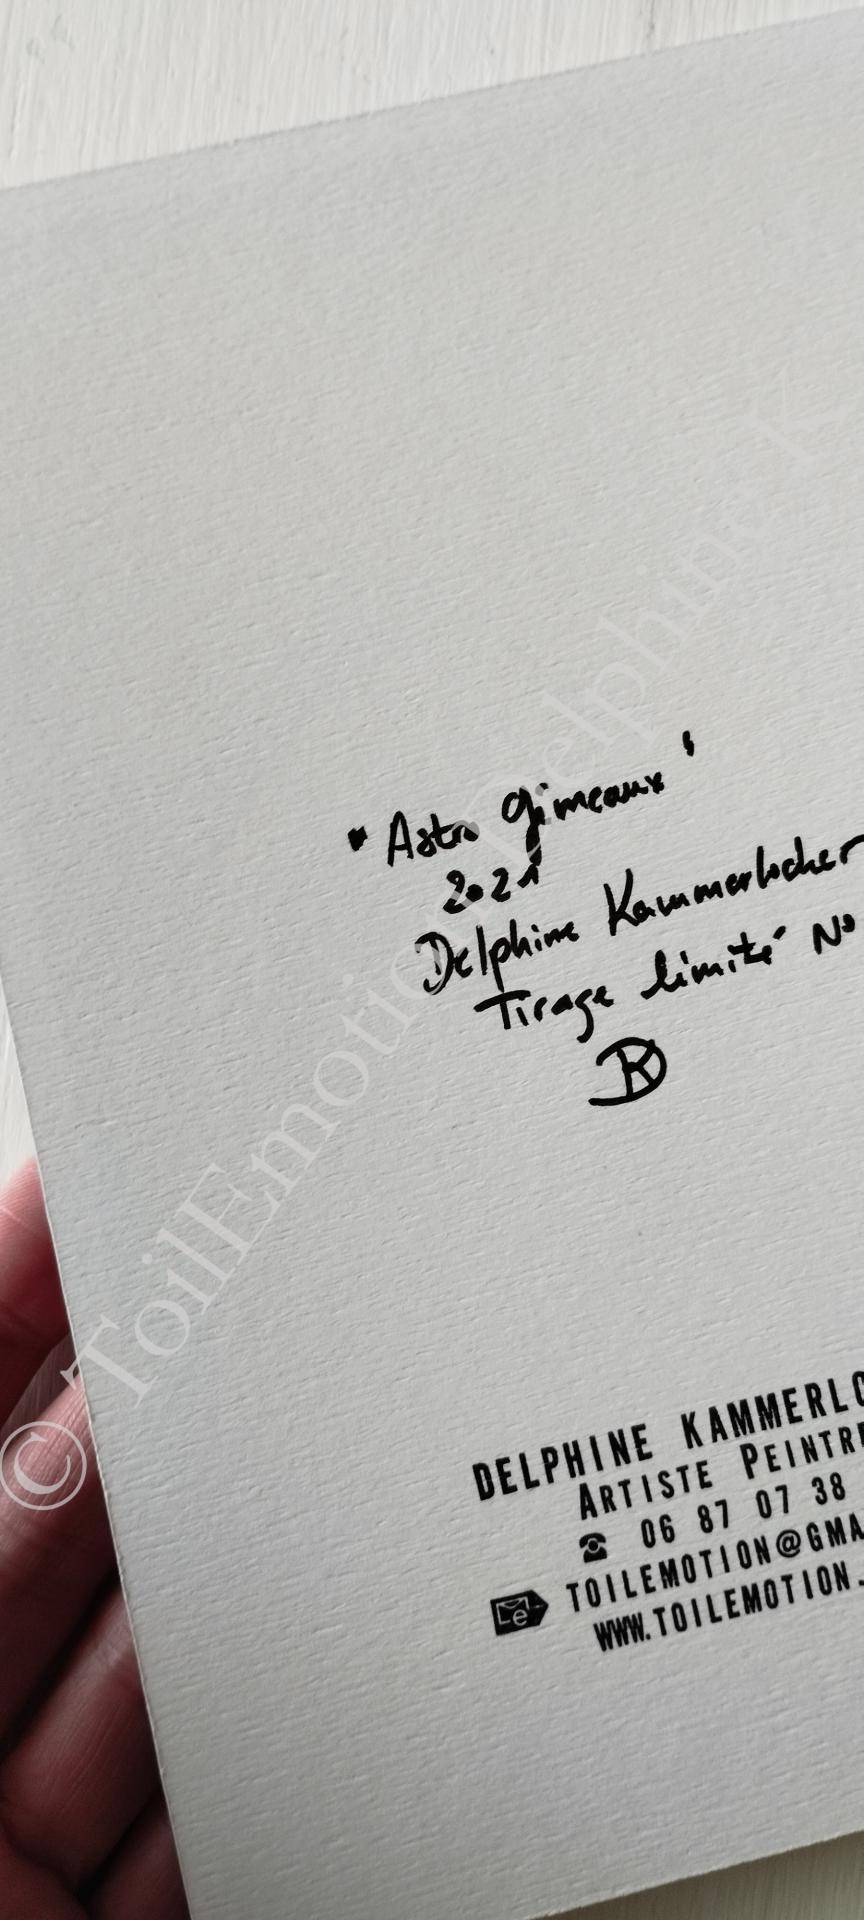 "Astro Gémeaux"
2021
Delphine Kammerlocher
Tirage limité N°
DK
DELPHINE KAMMERLO
ARTISTE PEINTRE
06 87 07 38
TOILEMOTION@GMA
WWW.TOILEMOTION.
© ToilEmotion Delphine K